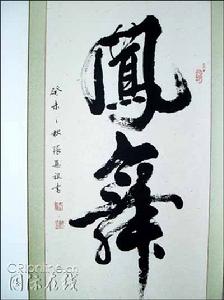 鳳舞
癸未之秋張
CRIonline.cn
国际在线